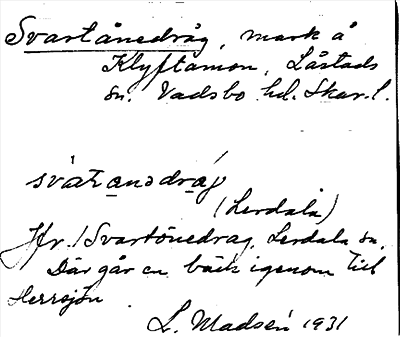 Svartånedråg, mark å
Klyftamon, Låstads
sn. Vadsbo hd. Skar. l.
svatanədrág
(Lerdala)
Jfr./Svartönedrag, Lerdala sn.
Där går en bäck igenom till
Herrsjön
L. Madsén 1931